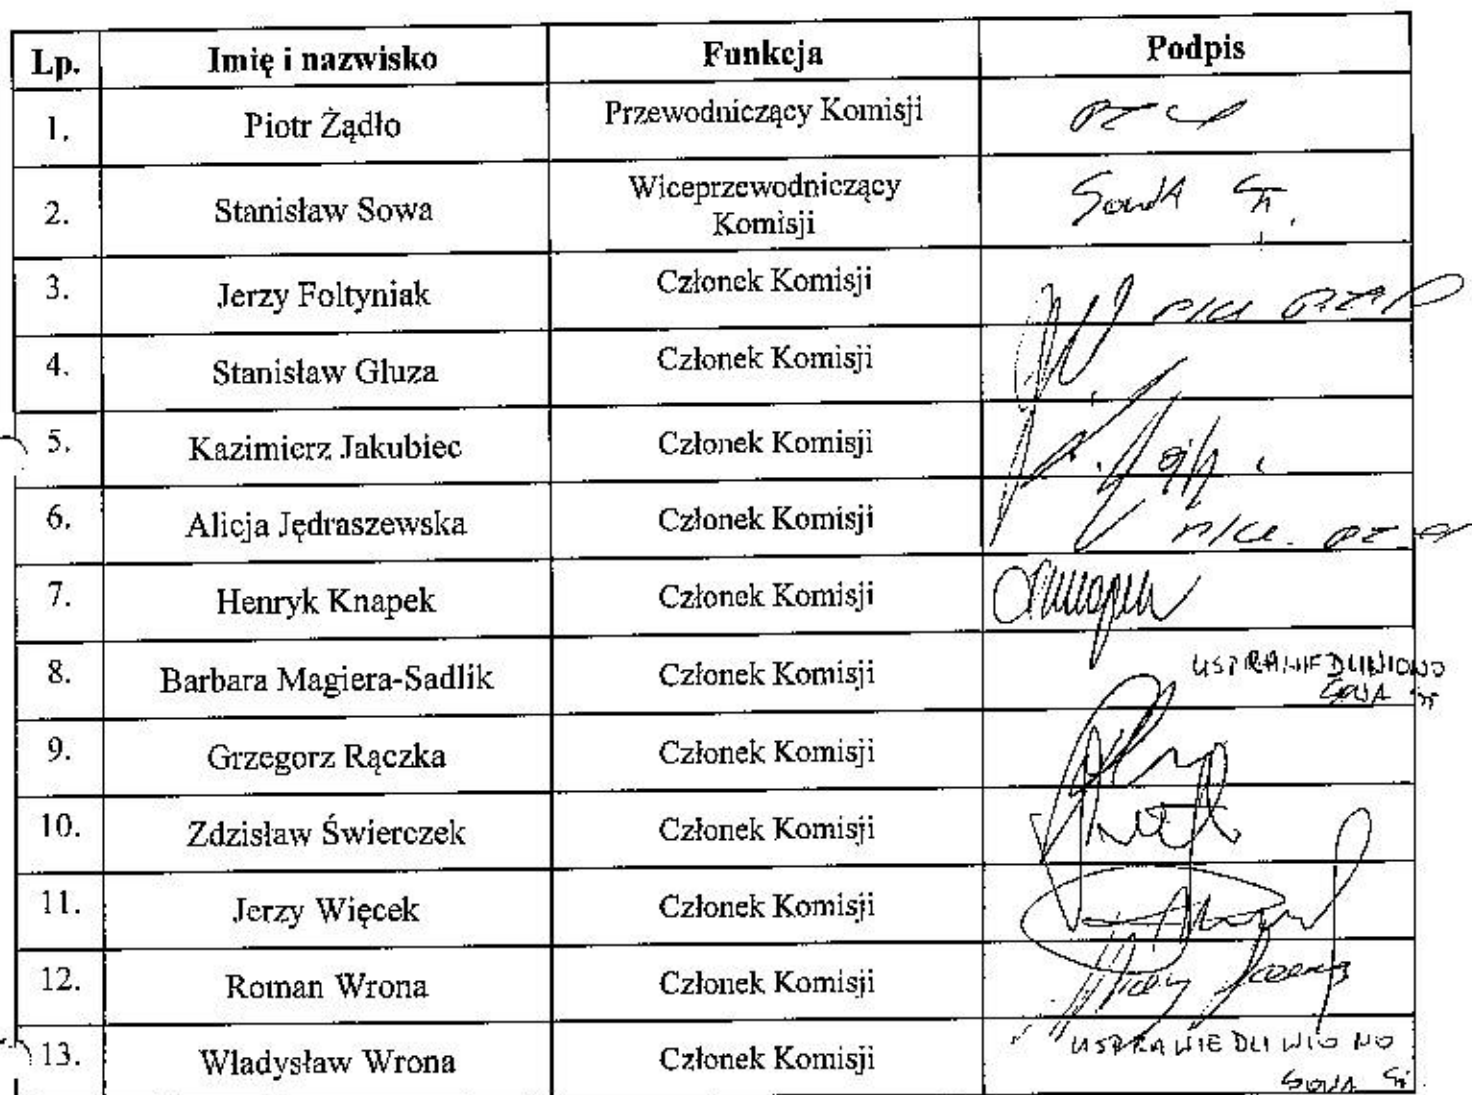 Lp. Imię i nazwisko Funkcja Podpis
1. Piotr Żądło Przewodniczący Komisji
2. Stanisław Sowa Wiceprzewodniczący Komisji Sowa St.
3. Jerzy Foltyniak Członek Komisji
4. Stanisław Gluza Członek Komisji
5. Kazimierz Jakubiec Członek Komisji
6. Alicja Jędraszewska Członek Komisji
7. Henryk Knapek Członek Komisji
8. Barbara Magiera-Sadlik Członek Komisji USPRAWIEDLIWIONO
SOWA St
9. Grzegorz Rączka Członek Komisji
10. Zdzisław Świerczek Członek Komisji
11. Jerzy Więcek Członek Komisji
12. Roman Wrona Członek Komisji
13. Władysław Wrona Członek Komisji USPRAWIEDLIWIONO
SOWA St